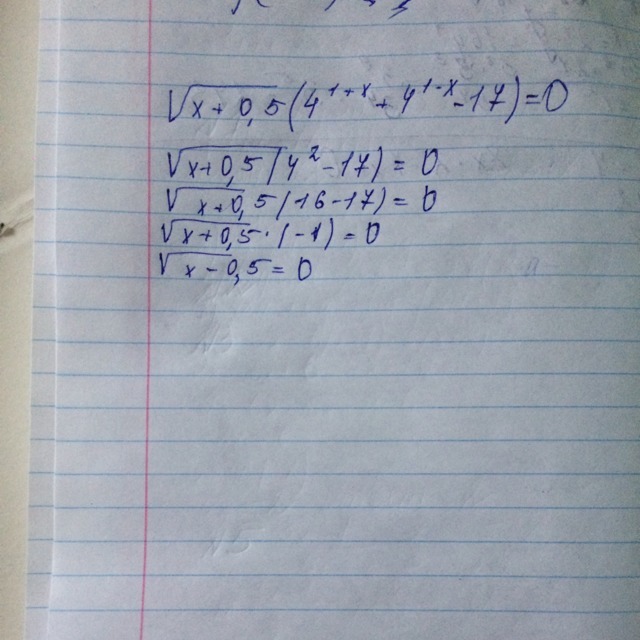 √x+0,5(4^1+x + 4^1-x - 17)=0
√x+0,5(4^2-17)=0
√x+0,5(16-17)=0
√x+0,5·(-1)=0
√x-0,5=0